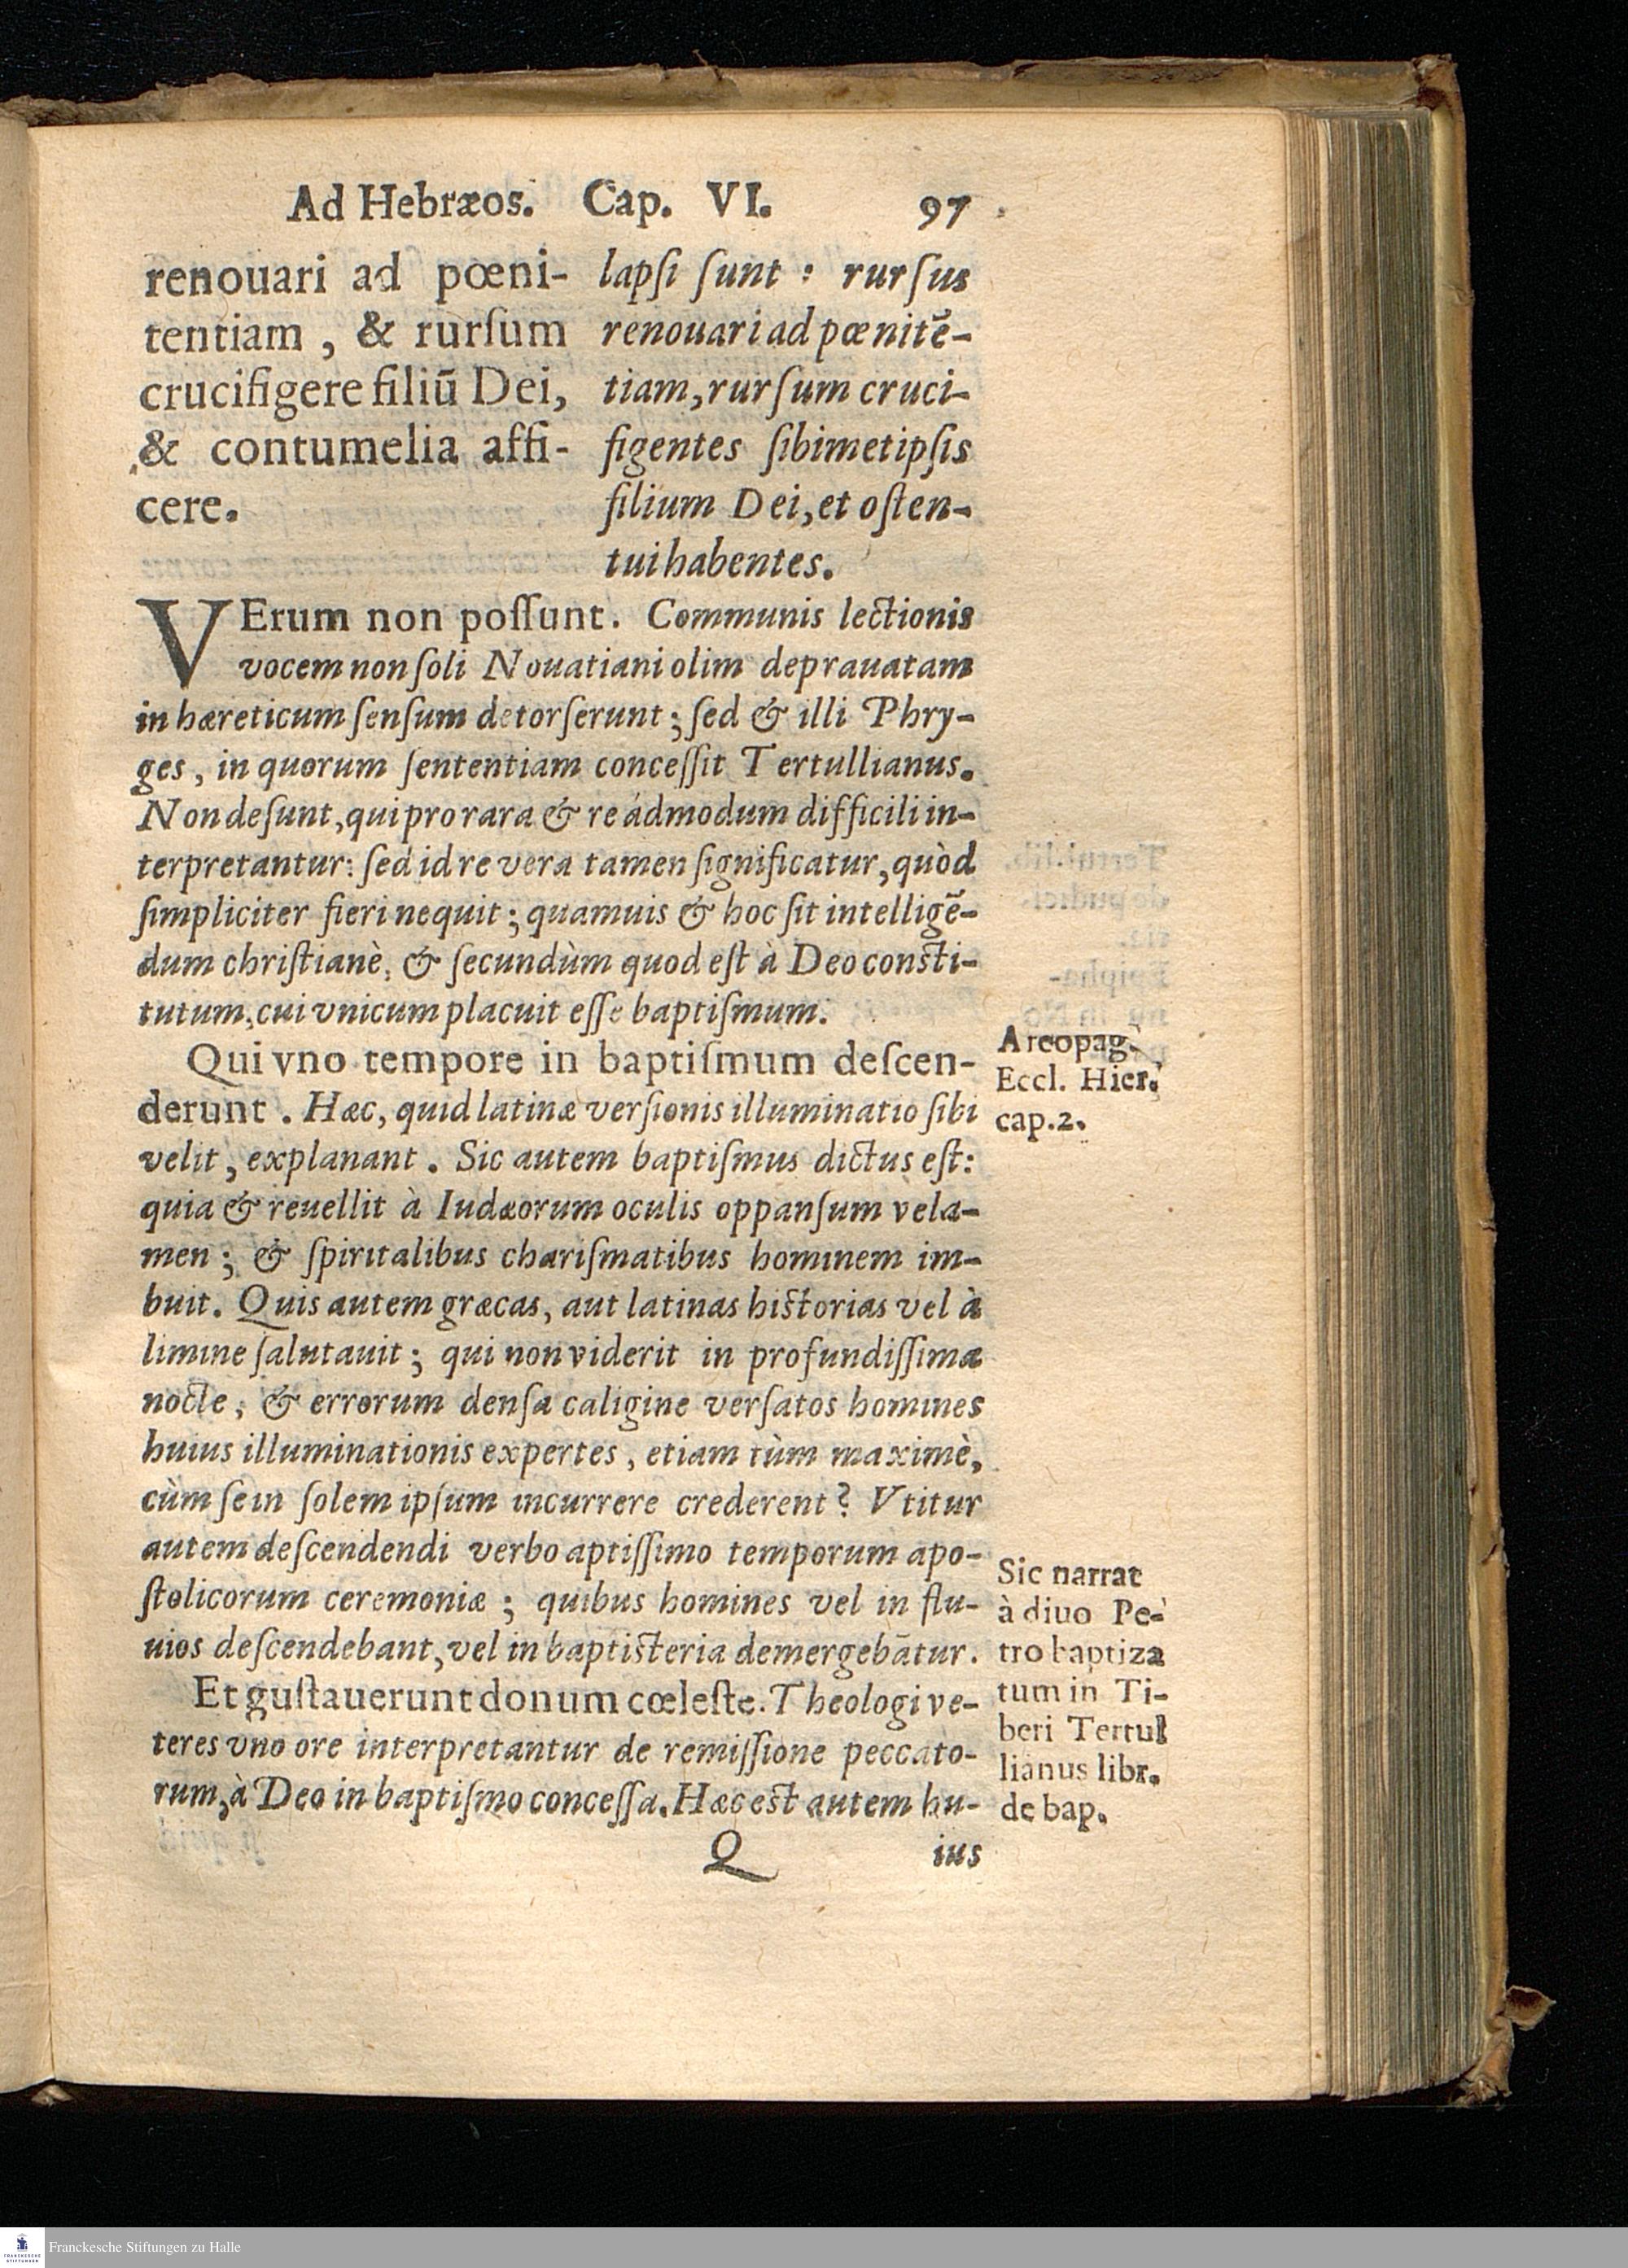 Ad Hebræos. Cap. VI. 97
renouari ad pœni-
tentiam, & rurſum
crucifigere filiū Dei,
& contumelia affi-
cere.
lapſi ſunt: rurſus
renouari ad pœnitē-
tiam, rurſum cruci-
figentes ſibimetipſis
filium Dei, et oſten-
tui habentes.
VErum non poſſunt. Communis lectionis
vocem non ſoli Nouatiani olim deprauatam
in hæreticum ſenſum detorſerunt; ſed & illi Phry-
ges, in quorum ſententiam conceſſit Tertullianus.
Non deſunt, qui pro rara & re admodum difficili in-
terpretantur: ſed id re vera tamen ſignificatur, quòd
ſimpliciter fieri nequit; quamuis & hoc ſit intelligē-
dum chriſtianè, & ſecundùm quod eſt à Deo conſti-
tutum, cui vnicum placuit eſſe baptiſmum.
Qui vno tempore in baptiſmum deſcen-
derunt. Hæc, quid latinæ verſionis illuminatio ſibi
velit, explanant. Sic autem baptiſmus dictus eſt:
quia & reuellit à Iudæorum oculis oppanſum vela-
men; & ſpiritalibus chariſmatibus hominem im-
buit. Quis autem græcas, aut latinas hiſtorias vel à
limine ſalutauit; qui non viderit in profundiſſima
nocte, & errorum denſa caligine verſatos homines
huius illuminationis expertes, etiam tùm maximè,
cùm ſe in ſolem ipſum incurrere crederent? Vtitur
autem deſcendendi verbo aptiſſimo temporum apo-
ſtolicorum ceremoniæ; quibus homines vel in flu-
uios deſcendebant, vel in baptiſteria demergebātur.
Et guſtauerunt donum cœleſte. Theologi ve-
teres vno ore interpretantur de remiſſione peccato-
rum, à Deo in baptiſmo conceſſa. Hæc eſt autem hu-
Q ius
Areopag.
Eccl. Hier.
cap.2.
Sic narrat
à diuo Pe-
tro baptiza
tum in Ti-
beri Tertul
lianus libr.
de bap.
FRANCKESCHE
STIFTUNGEN
Franckesche Stiftungen zu Halle